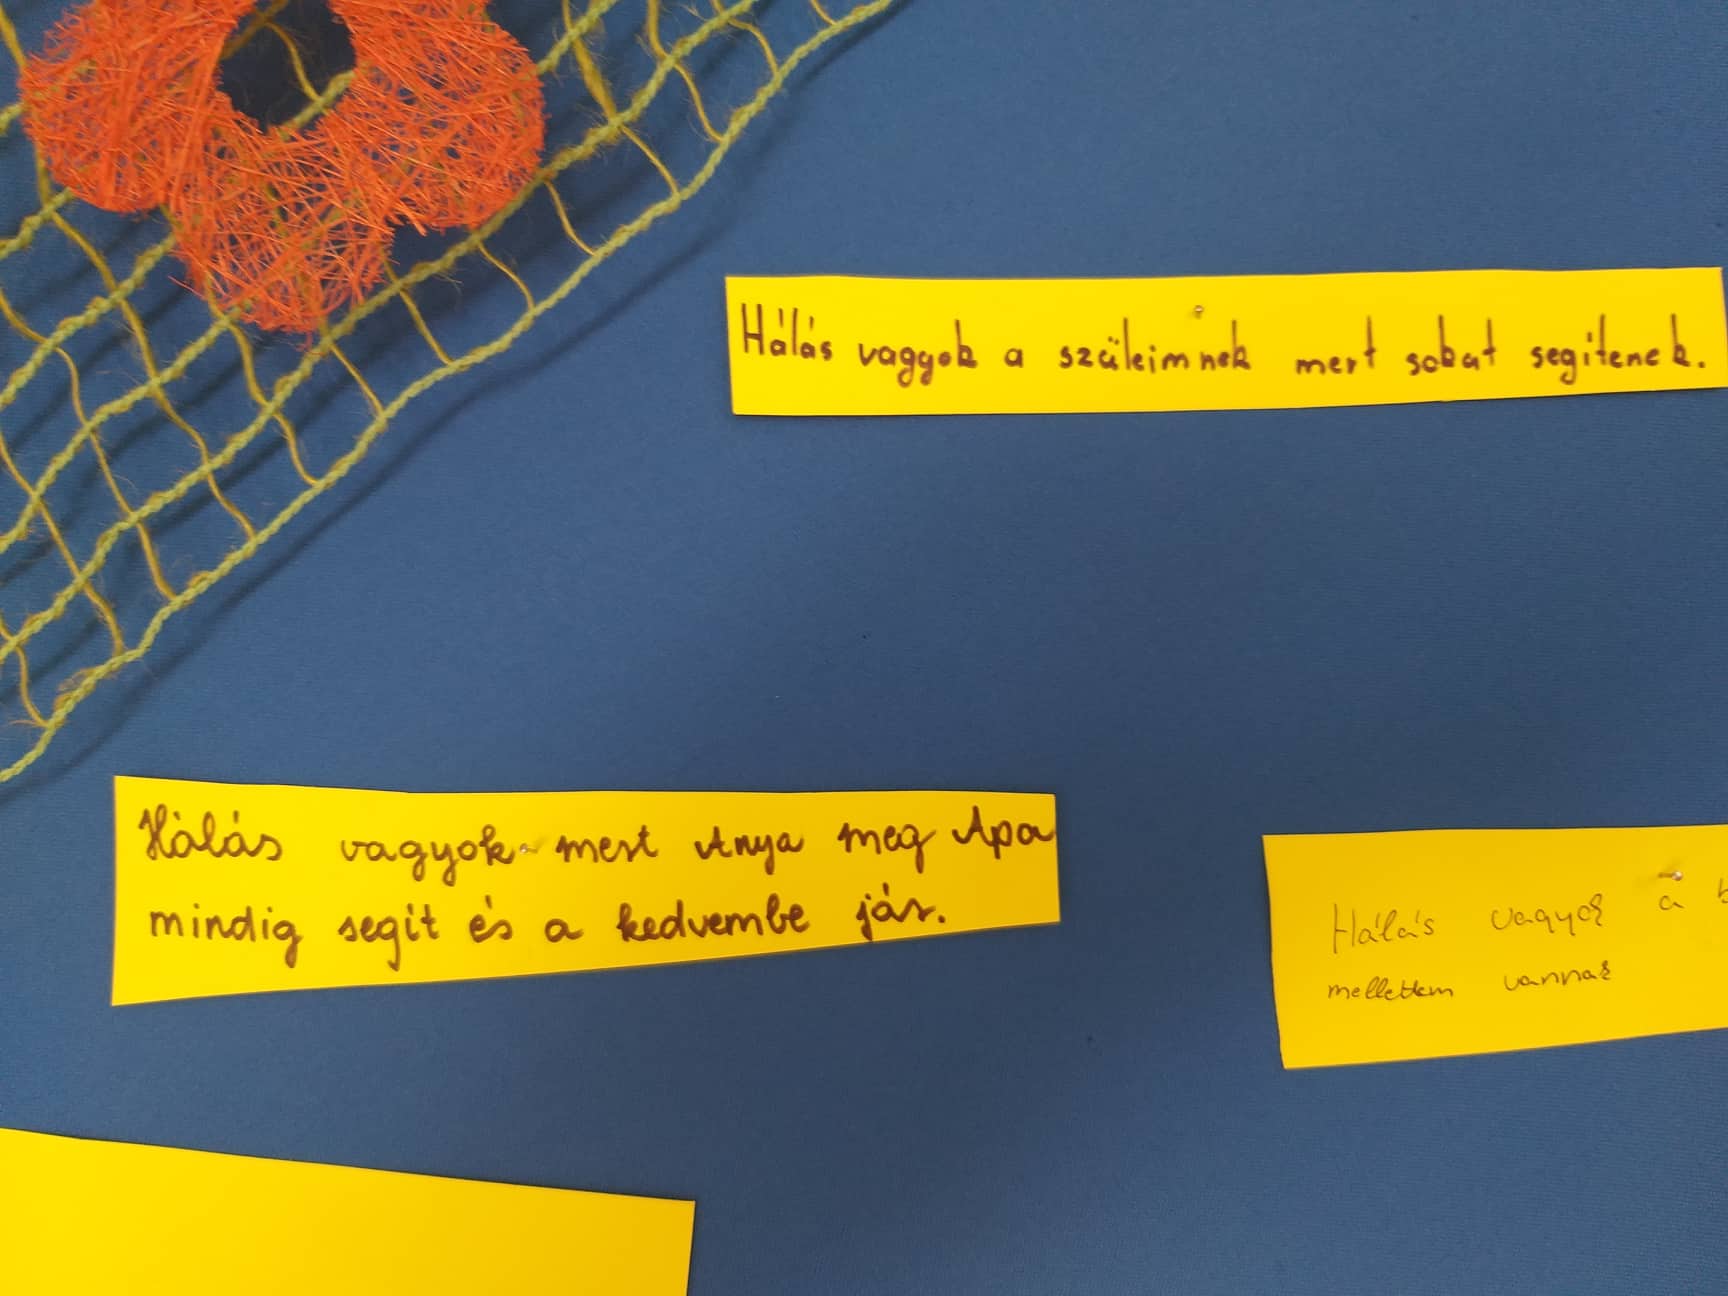 Hálás vaggyok a szüleimnek mert sokat segítenek.
Hálás vagyok mert Anya meg Apa
mindig segít és a kedvembe jár.
Hálás vagyok a
mellettem vannak